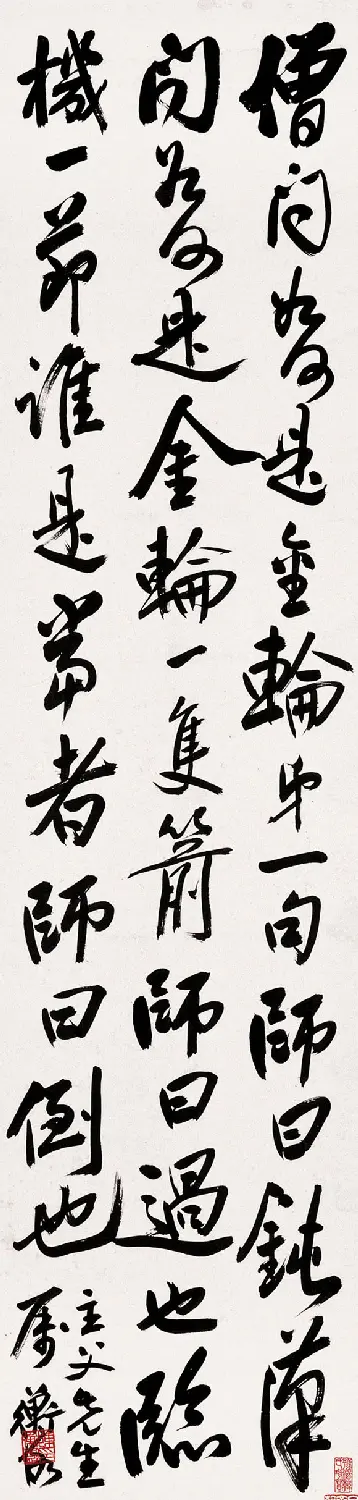 僧問如何是金輪第一句師曰鈍漢
問如何是金輪一隻箭師曰過也臨
機一箭誰是當者師曰倒也
主父先生
属 衡山